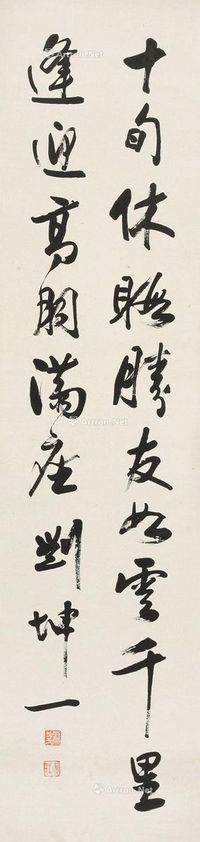 十旬休暇勝友如雲千里
逢迎高朋滿座劉坤一